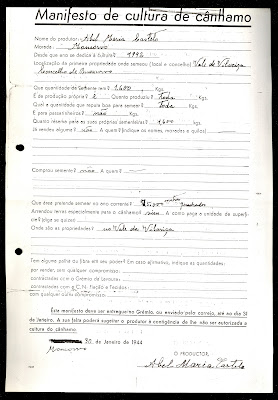 Manifesto de cultura de cânhamo
Nome do produtor: Abel Maria Castelo
Morada: Moncorvo
Desde que ano se dedica à cultura?
Localização da primeira propriedade onde semeou (local e concelho) Vale de Vilariça
Concelho de Moncorvo
Que quantidade de semente tem? 1.600 Kgs.
É de produção própria? é Quanto produziu? toda Kgs.
Qual a quantidade que reputa boa para semear? Toda Kgs.
E para passarinhos? não Kgs.
Quanto reserva para as suas próprias sementeiras? 1.600 Kgs.
Já vendeu alguma? não A quem? (indique os nomes, moradas e quilos)
Comprou semente? não A quem?
Que área pretende semear no ano corrente? metros quadrados
Arrendou terras especialmente para o cânhamo? A como paga a unidade de superfície? (diga se quiser)
Onde são as propriedades? no Vale da Vilariça
Tem alguma palha ou fibra em seu poder? Em caso afirmativo, indique as quantidades:
por vender, sem qualquer compromisso
contratados com o Grémio da Lavoura
contratados com a C. N. Fiação e Tecidos
com qualquer outro compromisso
Este manifesto deve ser entregue no Grémio, ou enviado pelo correio, até ao dia 31
de Janeiro. A sua falta poderá sujeitar o produtor à contingência de lhe não ser autorizada a
cultura do cânhamo.
Moncorvo 30 de Janeiro de 1944
O PRODUCTOR,
Abel Maria Castelo